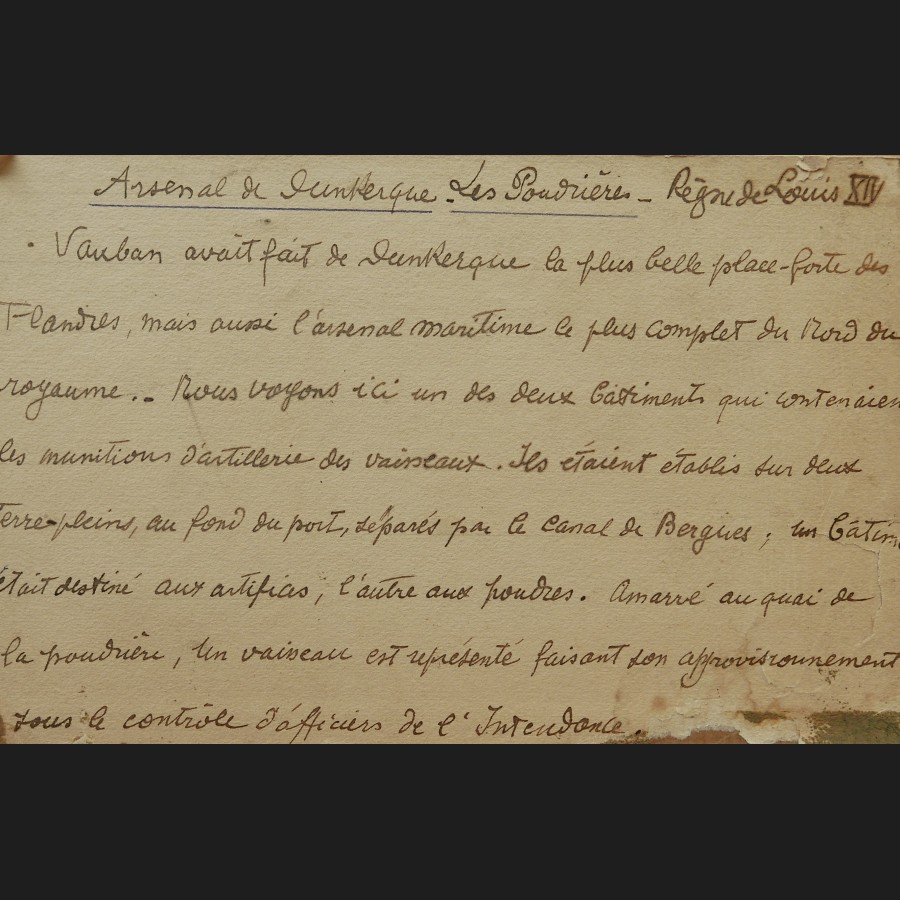 Arsenal de Dunkerque - Les Poudrières - Règne de Louis XIV
. Vauban avait fait de Dunkerque la plus belle place-forte des
Flandres, mais aussi l'arsenal maritime le plus complet du Nord du
royaume.. - Nous voyons ici un des deux bâtiments qui contenaien
les munitions d'artillerie des vaisseaux. Ils étaient établis sur deux
terre-pleins, au fond du port, séparés par le canal de Bergues ; un bâtim
était destiné aux artifices, l'autre aux poudres. Amarré au quai de
la poudrière, un vaisseau est représenté faisant son approvisionnement
sous le contrôle d'officiers de l'Intendance.